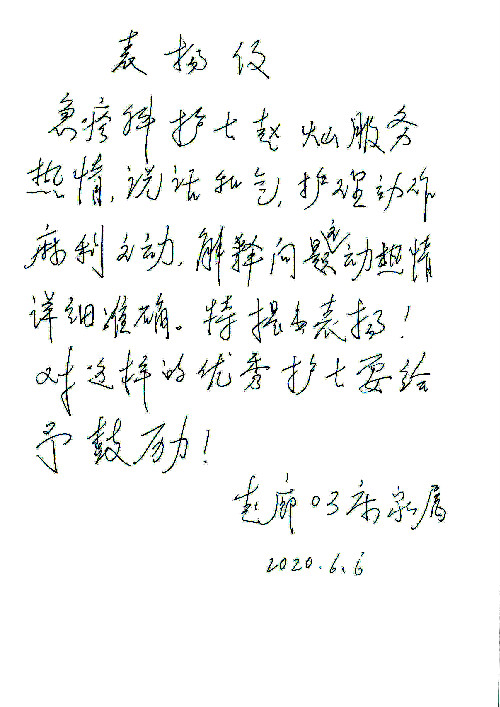 表扬信
急疹科护士赵灿服务
热情,说话和气,护理动作
麻利主动,解释问题主动热情
详细准确。特提出表扬!
对这样的优秀护士要给
予鼓励!
走廊03床家属
2020.6.6